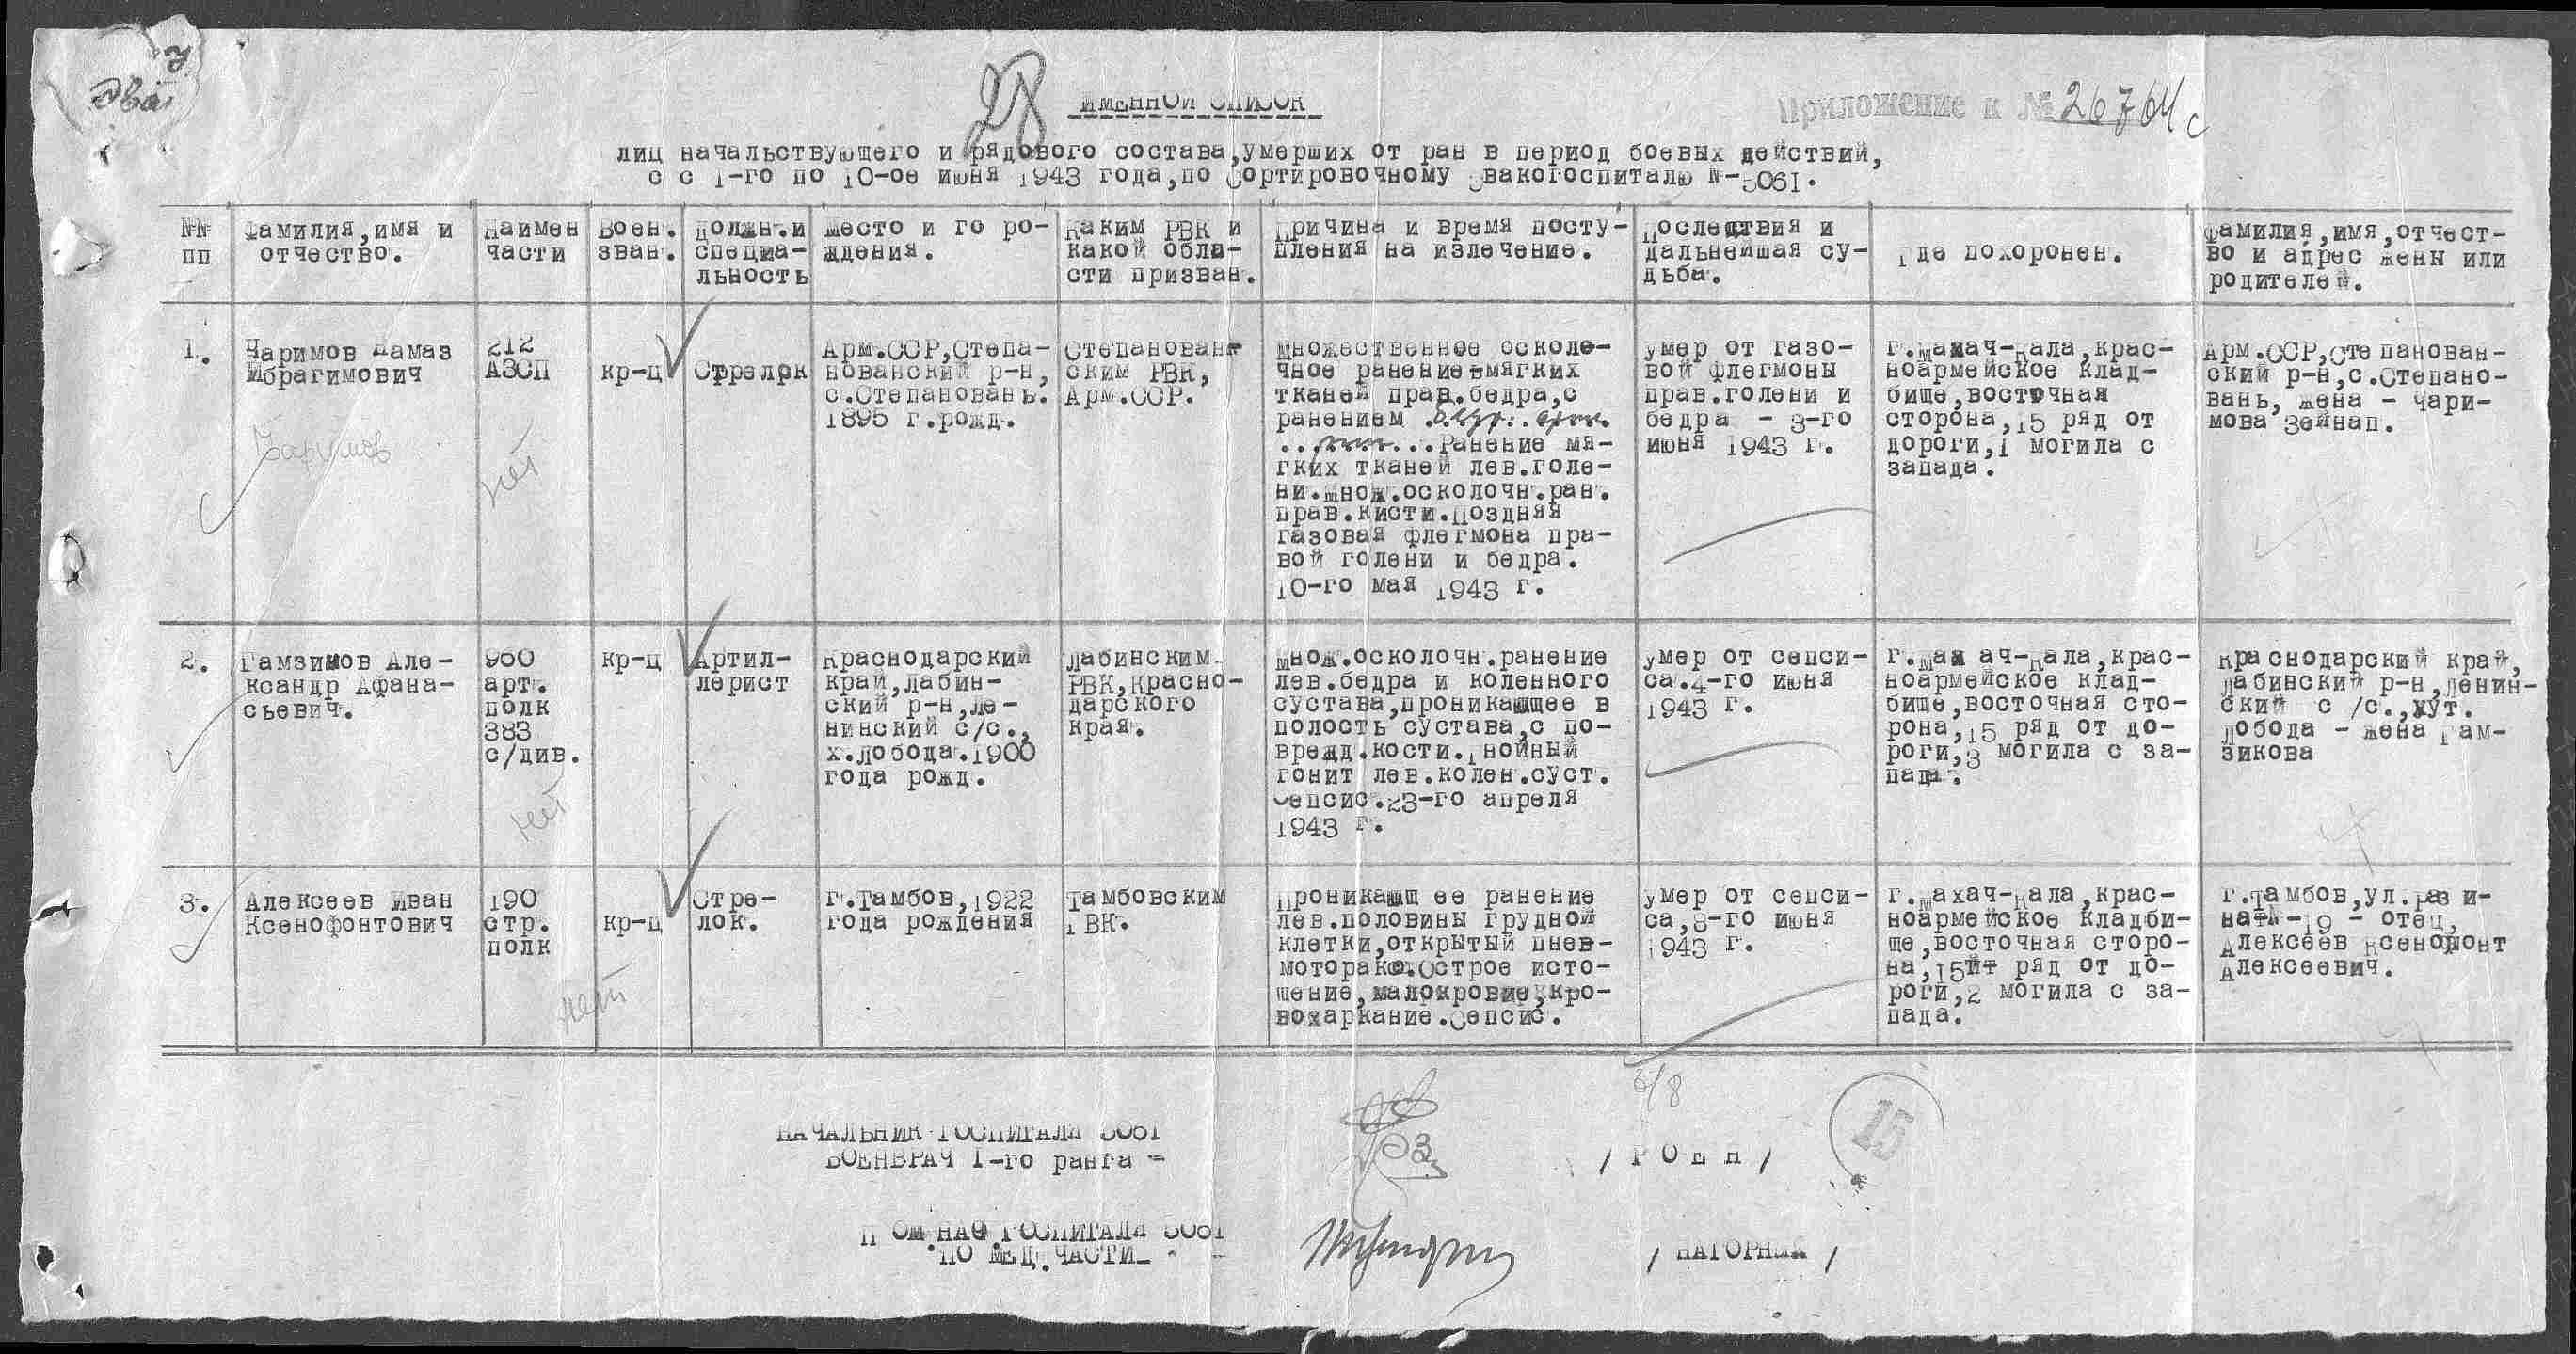 два
28
ИМЕННОЙ СПИСОК
Приложение к № 26764с
лиц начальствующего и рядового состава,умерших от ран в период боевых действий,
с с 1-го по 10-ое июня 1943 года,по сортировочному эвакогоспиталю №-5061.
№№ пп
Фамилия,имя и отчество.
Наимен части
Воен. зван.
Должн.и специа-льность
Место и го ро-ждения.
Каким РВК и какой обла-сти призван.
Причина и время посту-пления на излечение.
Последствия и дальнейшая су-дьба.
Где похоронен.
Фамилия,имя,отчест-во и адрес жены или родителей.
1.
Чаримов Намаз
Ибрагимович
Чаримов
212
АЗСП
нет
кр-ц
Стрелок
Арм.ССР,Степа-
нованский р-н,
с.Степановань.
1895 г.рожд.
Степанован-
ским РВК,
Арм.ССР.
Множественное осколо-
чное ранение мягких
тканей прав.бедра,с
ранением
Ранение мя-
гких тканей лев.голе-
ни.Множ.осколочн.ран.
прав.кисти.Поздняя
газовая флегмона пра-
вой голени и бедра.
10-го мая 1943 г.
умер от газо-
вой флегмоны
прав.голени и
бедра - 3-го
июня 1943 г.
г.Махач-Кала,крас-
ноармейское клад-
бище,восточная
сторона,15 ряд от
дороги,1 могила с
запада.
Арм.ССР,Степанован-
ский р-н,с.Степано-
вань, жена - Чари-
мова Зейнап.
2.
Гамзиков Але-
ксандр Афана-
сьевич.
960
арт.
полк
383
с/див.
нет
кр-ц
Артил-
лерист
Краснодарский
край,Лабин-
ский р-н,Ле-
нинский с/с.,
х.Лобода.1900
года рожд.
Лабинским
РВК,Красно-
дарского
края.
Множ.осколочн.ранение
лев.бедра и коленного
сустава,проникающее в
полость сустава,с по-
врежд.кости.Гнойный
гонит лев.колен.суст.
Сепсис.23-го апреля
1943 г.
умер от сепси-
са.4-го июня
1943 г.
г.Махач-Кала,крас-
ноармейское клад-
бище,восточная сто-
рона,15 ряд от до-
роги,3 могила с за-
пада.
Краснодарский край,
Лабинский р-н,Ленин-
ский с/с.,хут.
Лобода - жена Гам-
зикова
3.
Алексеев Иван
Ксенофонтович
190
стр.
полк
нет
кр-ц
Стре-
лок.
г.Тамбов,1922
года рождения
Тамбовским
ГВК.
Проникающ ее ранение
лев.половины грудной
клетки,открытый пнев-
моторакс.Острое исто-
щение,малокровие,кро-
вохаркание.Сепсис.
умер от сепси-
са,8-го июня
1943 г.
г.Махач-Кала,крас-
ноармейское кладби-
ще,восточная сторо-
на,15 ряд от до-
роги,2 могила с за-
пада.
г.Тамбов,ул.Рази-
на -19 - отец,
Алексеев Ксенофонт
Алексеевич.
6/8
15
НАЧАЛЬНИК ГОСПИТАЛЯ 5061
ВОЕНВРАЧ 1-го ранга -
/ Р О Е Н /
П ОМ НАЧ.ГОСПИТАЛЯ 5061
ПО МЕД.ЧАСТИ- -
/ НАГОРНЫЙ /